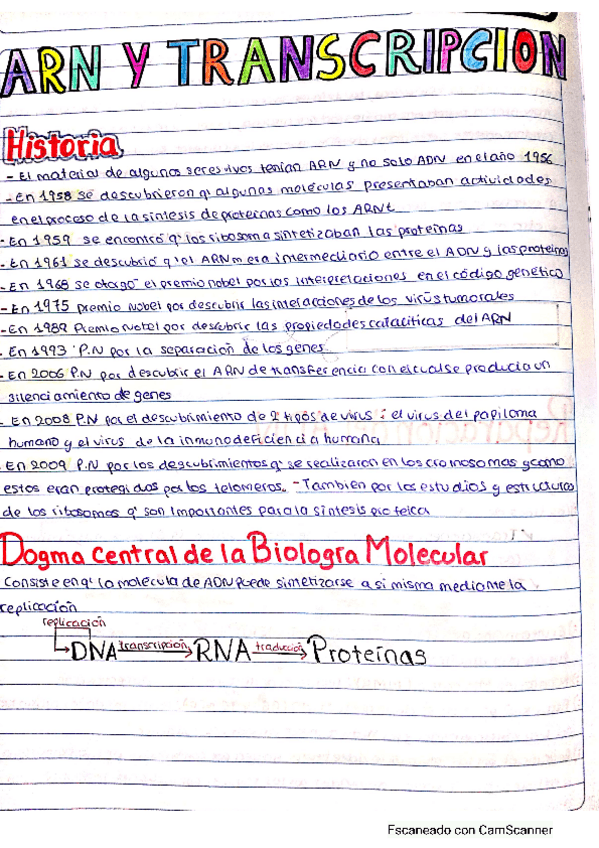 ARN Y TRANSCRIPCION
Historia
- El material de algunos seres vivos tenian ARN y no solo ADN en el año 1956
- En 1958 se descubrieron q' algunas moléculas presentaban actividades
en el proceso de la sintesis de proteinas como los ARNt
- En 1959 se encontró q' los ribosoma sintetizaban las proteinas
- En 1961 se descubrió q' el ARNm era intermediario entre el ADN y las proteinas
- En 1968 se otorgó el premio nobel por las interpretaciones en el código genético
- En 1975 premio Nobel por descubrir las interacciones de los virus tumorales
- En 1989 Premio Nobel por descubrir las propiedades cataliticas del ARN
- En 1993 P.N por la separación de los genes
- En 2006 P.N por descubrir el ARN de transferencia con el cual se producia un
silenciamiento de genes
- En 2008 P.N por el descubrimiento de 2 tipos de virus : el virus del papiloma
humano y el virus de la inmunodeficiencia humana
- En 2009 P.N por los descubrimientos q' se realizaron en los cromosomas y como
estos eran protegidos por los telomeros. - Tambien por los estudios y estructuras
de los ribosomas q' son importantes para la síntesis proteica
Dogma Central de la Biología Molecular
Consiste en q' la molecula de ADN puede sintetizarse a si misma mediante la
replicación
replicación
DNA transcripción RNA traducción Proteínas
Escaneado con CamScanner